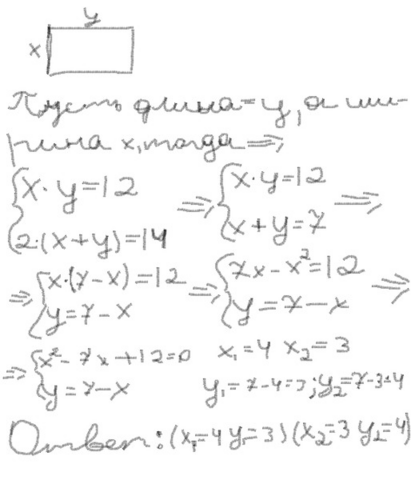 y
x
Пусть длина=y, а ши-
рина x, тогда =>
{x·y=12 => {x·y=12 =>
{2·(x+y)=14 {x+y=7
=> {x·(7-x)=12 => {7x-x²=12 =>
{y=7-x {y=7-x
=> {x²-7x+12=0 x₁=4 x₂=3
{y=7-x y₁=7-4=3; y₂=7-3=4
Ответ: (x₁=4 y₁=3) (x₂=3 y₂=4)